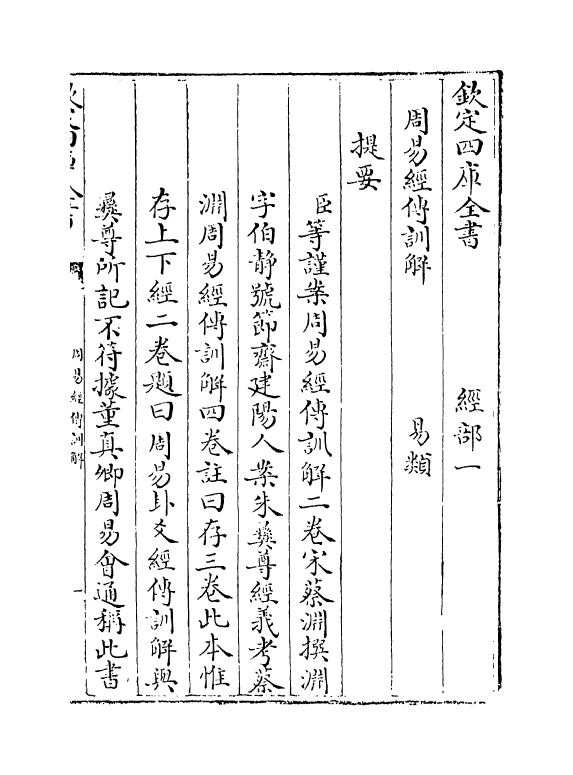 欽定四庫全書　經部一
周易經傳訓解　易類
提要
臣等謹案周易經傳訓解二卷宋蔡淵撰淵
字伯静號節齋建陽人案朱彝尊經義考蔡
淵周易經傳訓解四卷註曰存三卷此本惟
存上下經二卷題曰周易卦爻經傳訓解與
彝尊所記不符據董真卿周易會通稱此書
周易經傳訓解
一